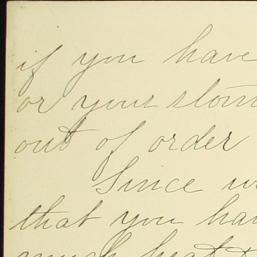 if you have
or your stom
out of order
Since w
that you hav
much heat